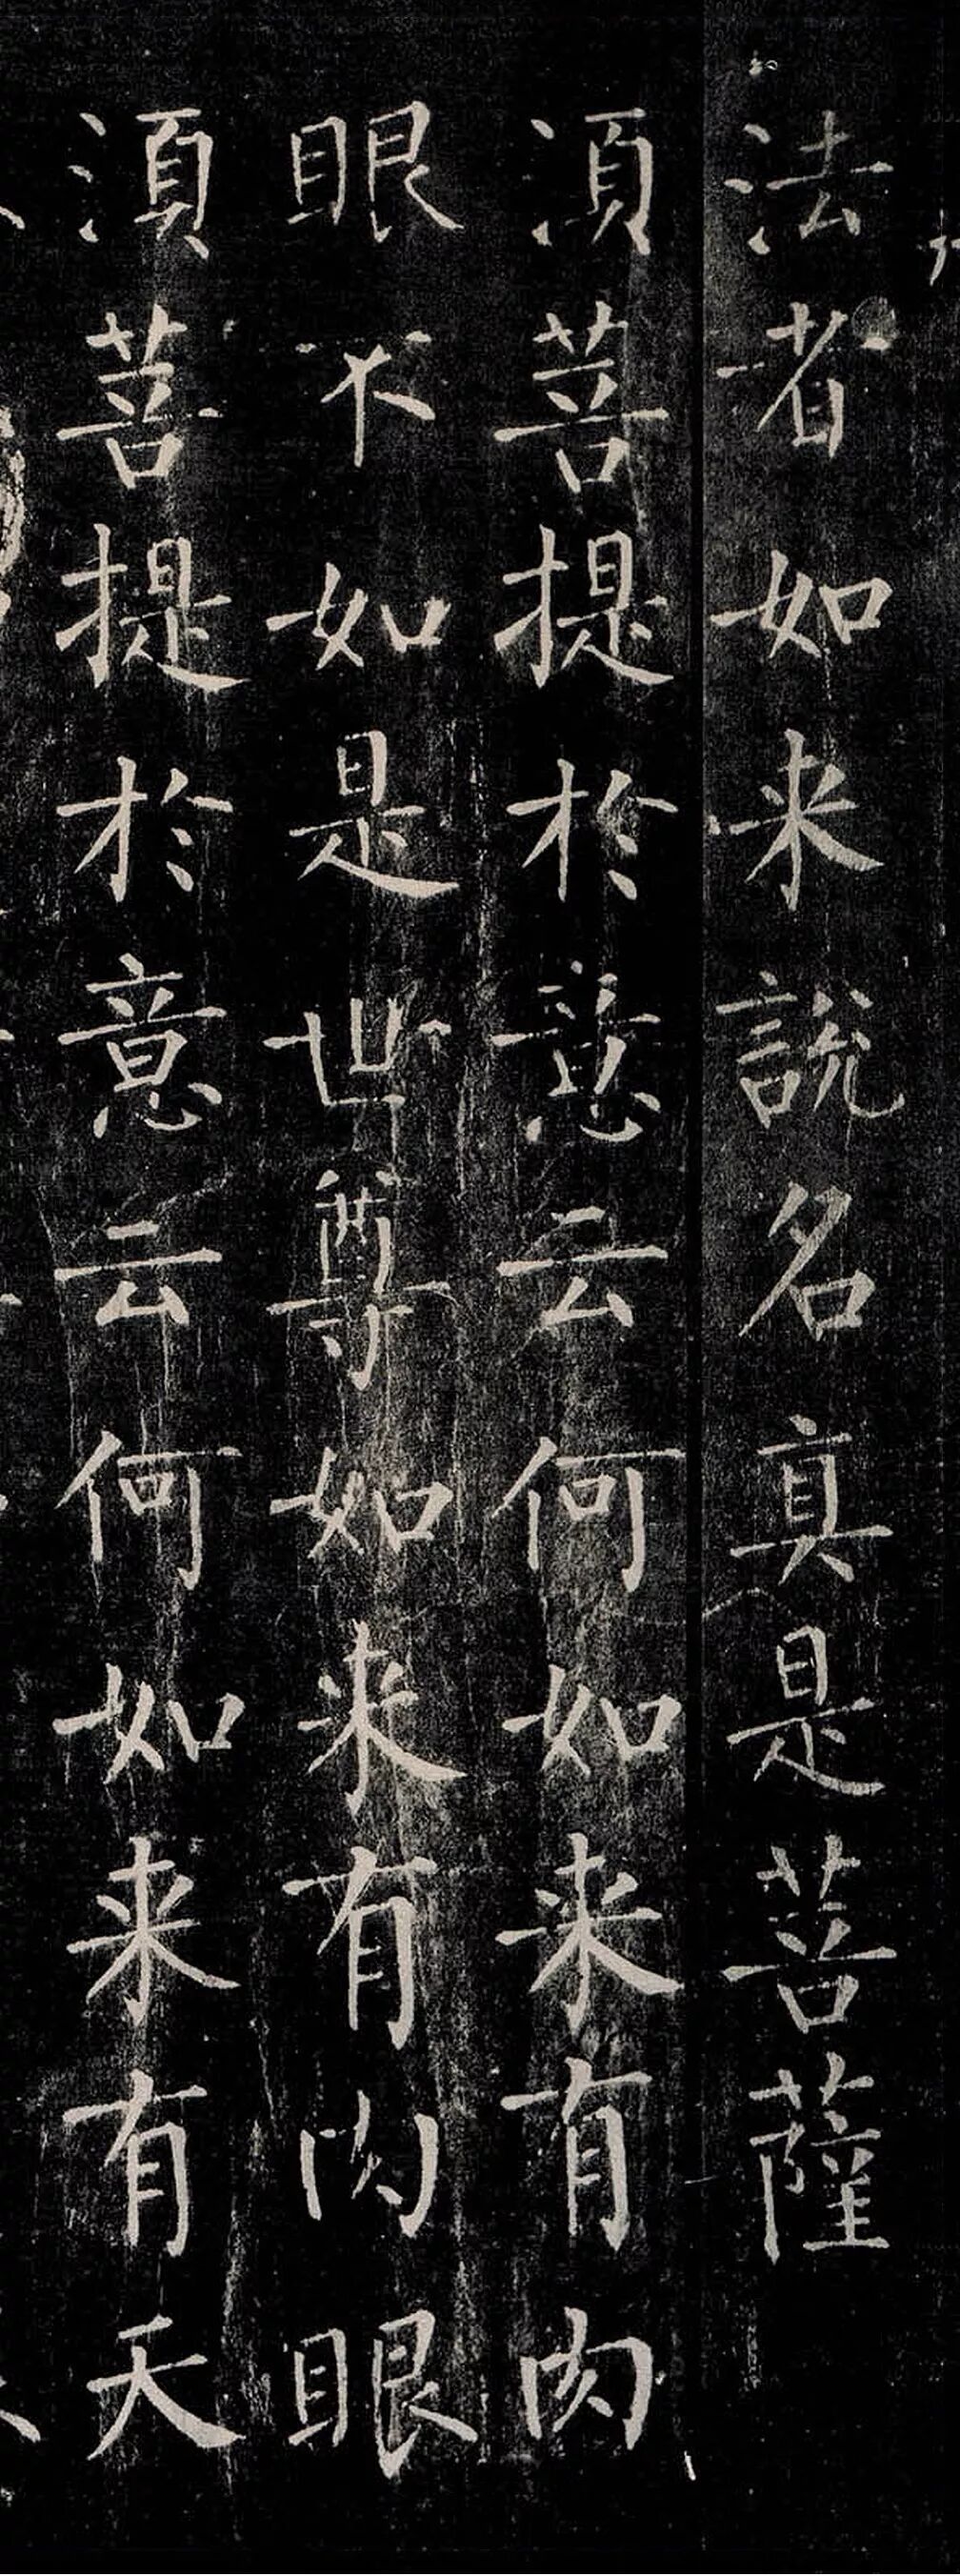 法者如来說名真是菩薩
須菩提於意云何如来有肉
眼不如是世尊如来有肉眼
須菩提於意云何如来有天